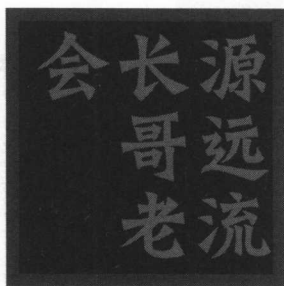 源远流
长哥老
会